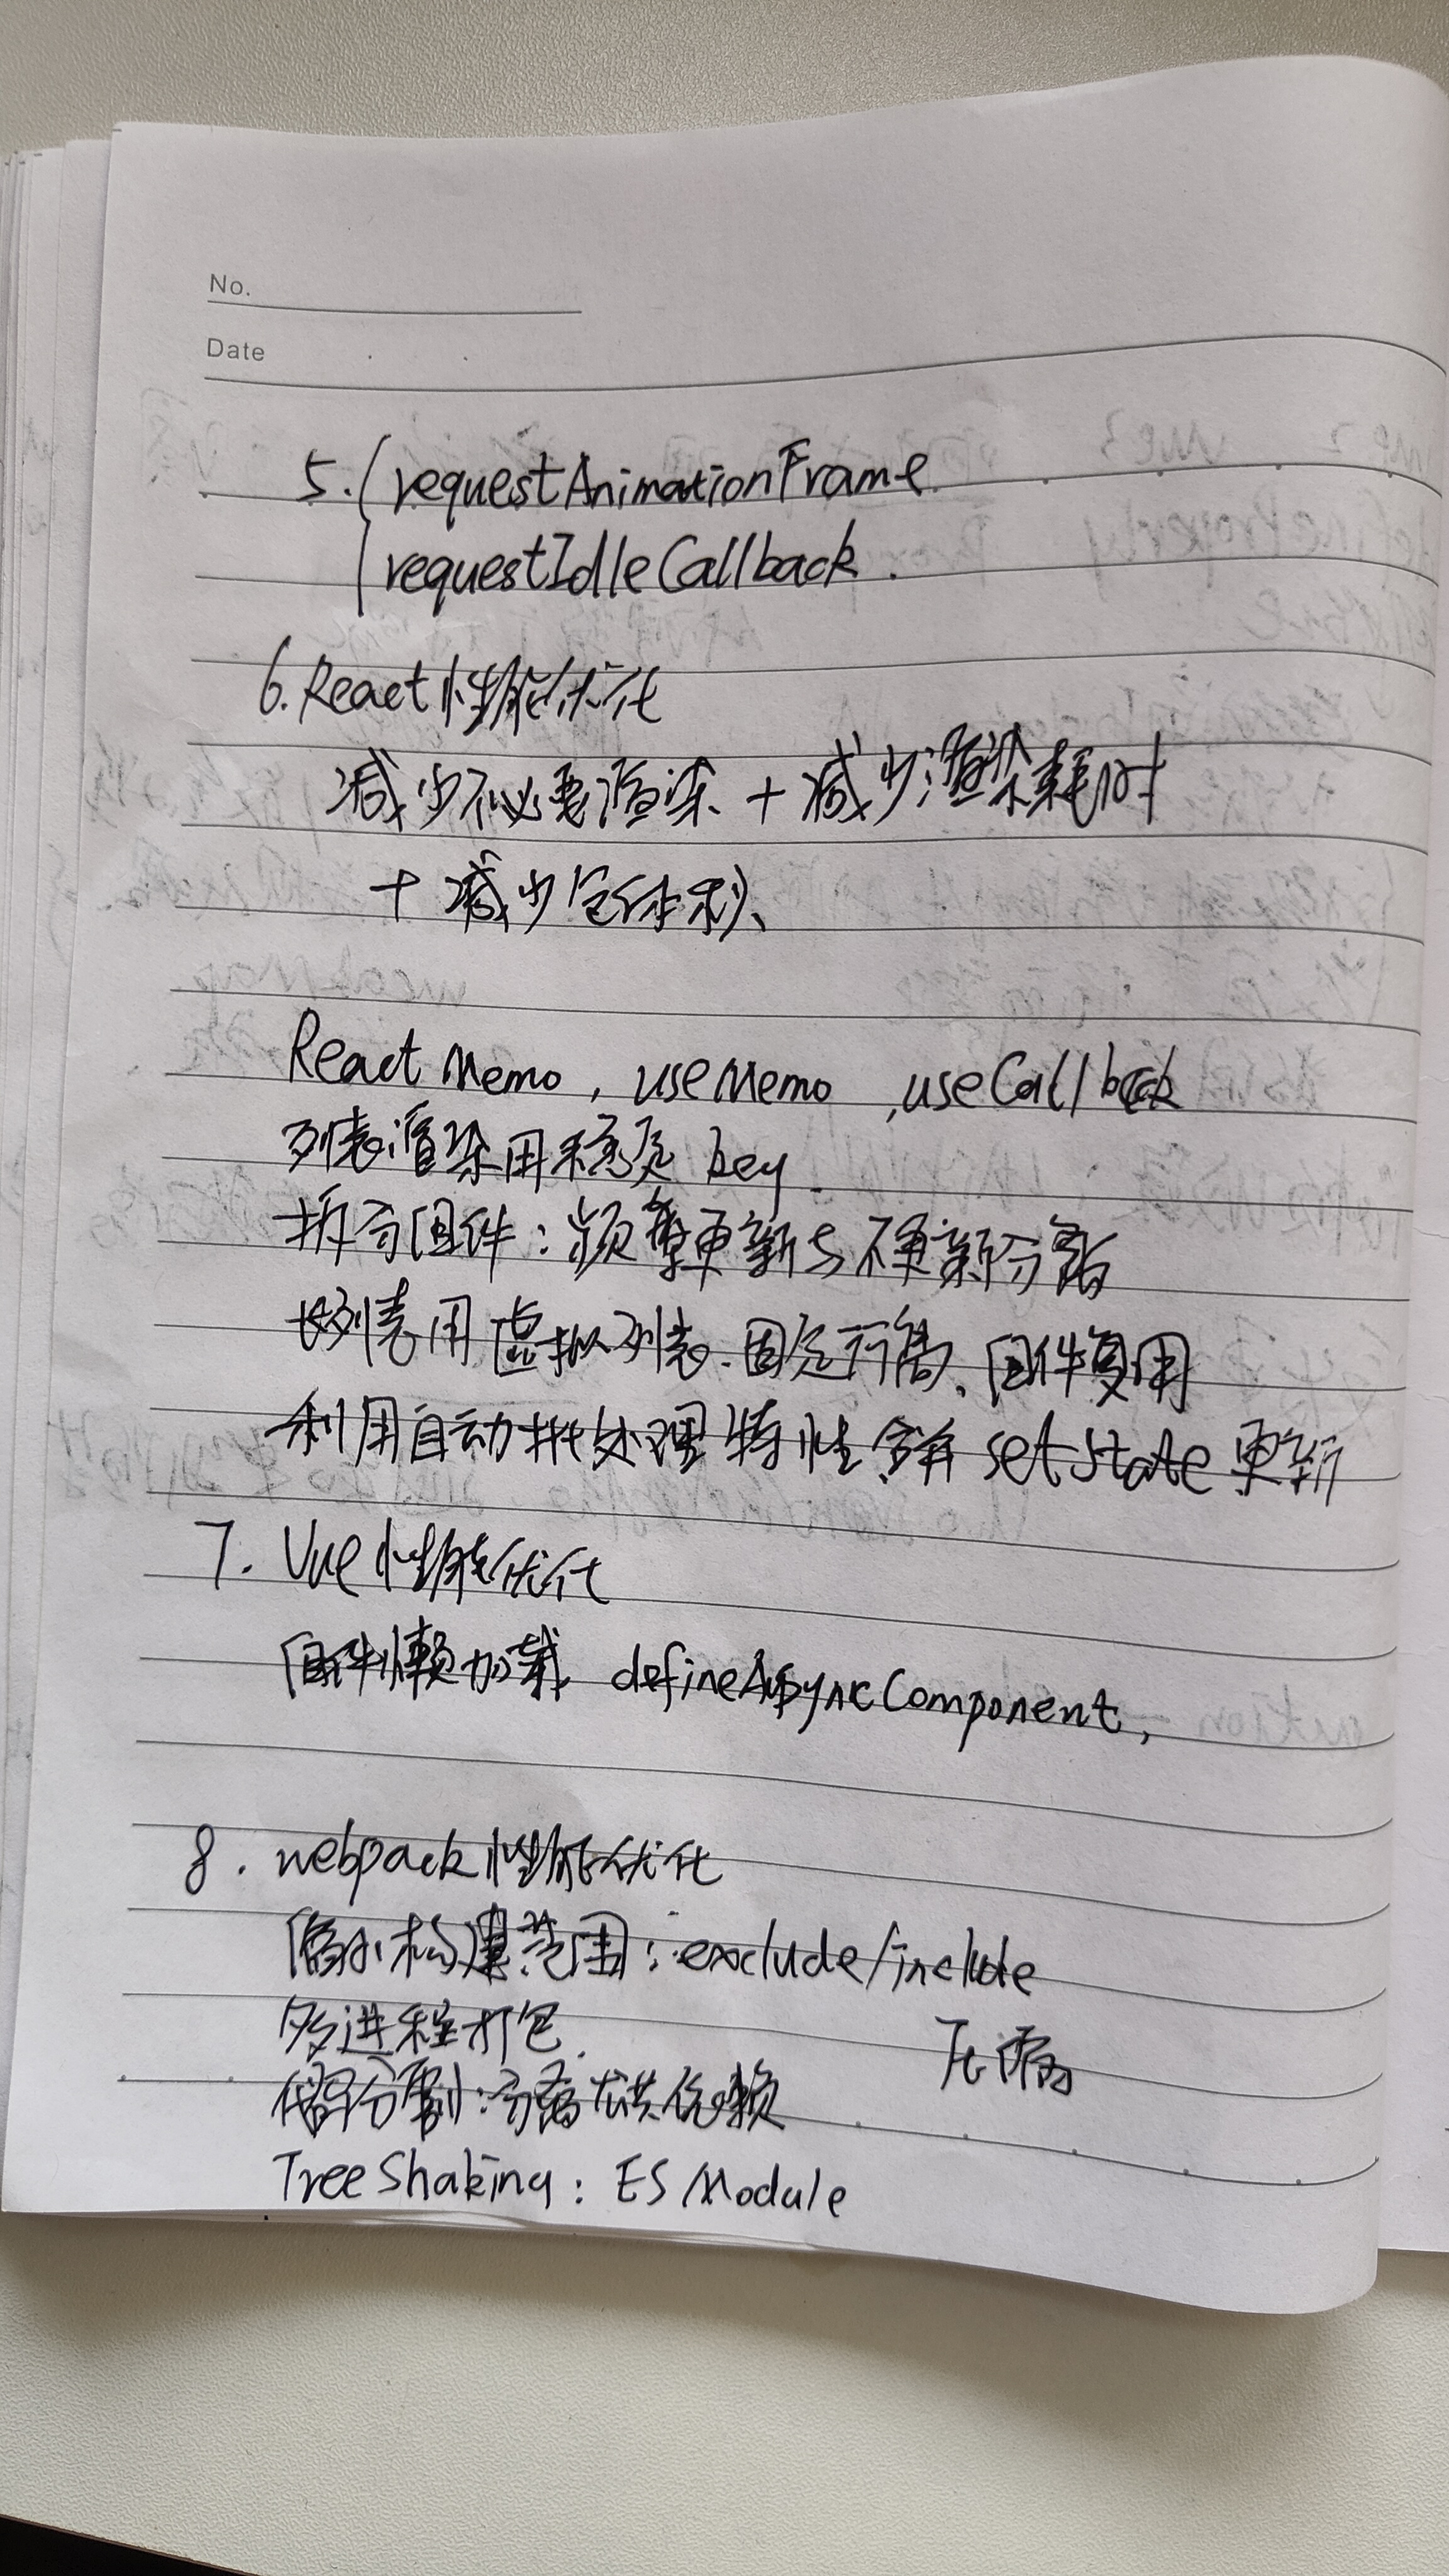 No.
Date
5. { requestAnimationFrame
requestIdleCallback.
6. React性能优化
减少不必要渲染 + 减少渲染耗时
+ 减少包体积、
React Memo , useMemo ,useCallback
列表渲染用稳定 key
拆分组件:频繁更新与不更新分离
长列表用虚拟列表.固定行高、组件复用
利用自动批处理特性合并 setState 更新
7. Vue性能优化
组件懒加载 defineAsyncComponent,
8. webpack性能优化
缩小构建范围:exclude/include
多进程打包.
代码分割:分离公共依赖
Tree Shaking: ES Module